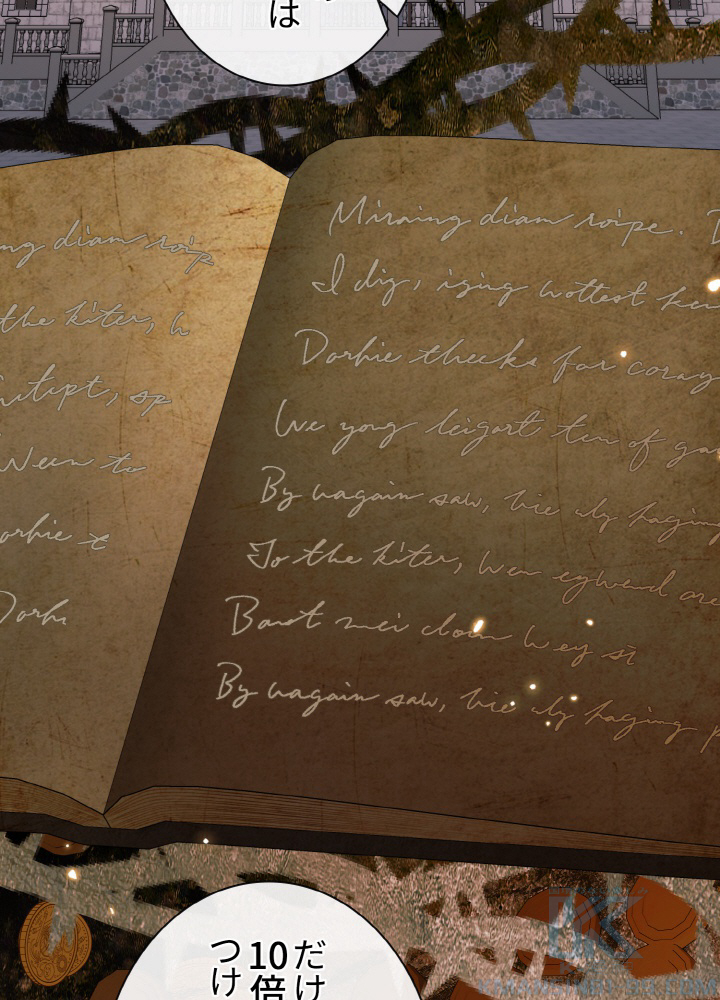 は
ng diam roip
the kiter, h
utept, sp
Ween to
orhie t
Dorh
Miraing diam roipe.
I dig, iging wottest
Dorhie thecks for coray
We yong leigort ten of ga
By uagain saw, bie aly haging
To the kiter, Wen eghwend are
Baret mei cloin
By uagain saw, bie aly haging p
だけ
10倍
つけ